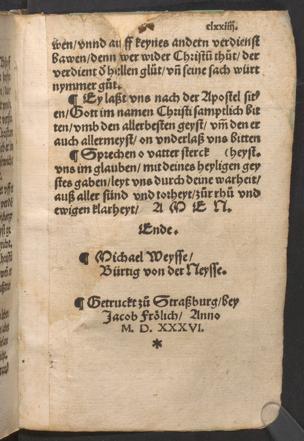 clxxiiij.
wen/ vnnd auff keynes andern verdienst
bawen/ denn wer wider Christū thůt/ der
verdient ď hellen glůt/ vñ seine sach würt
nymmer gůt.
¶ Ey laßt vns nach der Apostel sit⸗
en/ Gott im namen Christi samptlich bit
ten/ vmb den allerbesten geyst/ vm̃ den er
auch allermeyst/ on vnderlaß vns bitten
¶ Sprechen o vatter sterck (heyst.
vns im glauben/ mit deines heyligen gey
stes gaben/ leyt vns durch deine warheit/
auß aller sünd vnd torheyt/ zůr rhů vnd
ewigen klarheyt/ A M E N.
Ende.
¶ Michael Weysse/
Bürtig von der Neysse.
¶ Getruckt zů Straßburg/ bey
Jacob Frölich/ Anno
M. D. XXXVI.
*